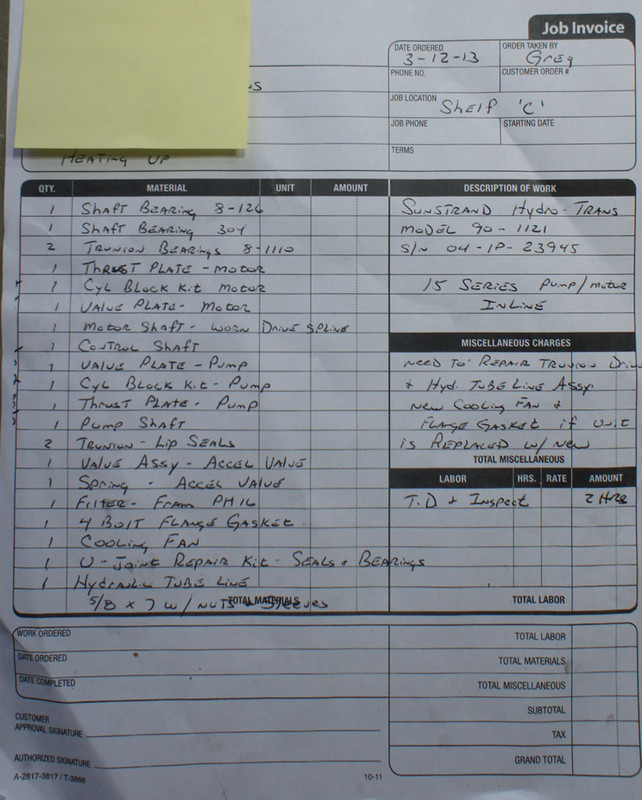 Job Invoice
DATE ORDERED
3-12-13
ORDER TAKEN BY
Greg
PHONE NO.
CUSTOMER ORDER #
JOB LOCATION
Shelf 'C'
JOB PHONE
STARTING DATE
TERMS
HEATING UP
QTY. MATERIAL UNIT AMOUNT
1 Shaft Bearing 8-126
1 Shaft Bearing 304
2 Trunion Bearings 8-1110
1 Thrust Plate - Motor
1 Cyl Block Kit Motor
1 Value Plate - Motor
1 Motor Shaft - Worn Drive Spline
1 Control Shaft
1 Value Plate - Pump
1 Cyl Block Kit - Pump
1 Thrust Plate - Pump
1 Pump Shaft
2 Trunion - Lip Seals
1 Value Assy - Accel Value
1 Spring - Accel Value
1 Filter - Fram PH16
1 4 Bolt Flange Gasket
1 Cooling Fan
1 U-Joint Repair Kit - Seals & Bearings
1 Hydraulic Tube Line
5/8 x 7 w/ Nuts & Sleeves
TOTAL MATERIALS
DESCRIPTION OF WORK
Sunstrand Hydro-Trans
Model 90-1121
S/N 04-1P-23945
15 Series Pump/Motor
Inline
MISCELLANEOUS CHARGES
Need to Repair Trunion Drive
& Hyd. Tube Line Assy
New Cooling Fan &
Flange Gasket if Unit
is Replaced w/ New
TOTAL MISCELLANEOUS
LABOR HRS. RATE AMOUNT
T.D & Inspect 2 Hrs
TOTAL LABOR
WORK ORDERED
DATE ORDERED
DATE COMPLETED
CUSTOMER
APPROVAL SIGNATURE
AUTHORIZED SIGNATURE
A-2817-3817 / T-3866
10-11
TOTAL LABOR
TOTAL MATERIALS
TOTAL MISCELLANEOUS
SUBTOTAL
TAX
GRAND TOTAL